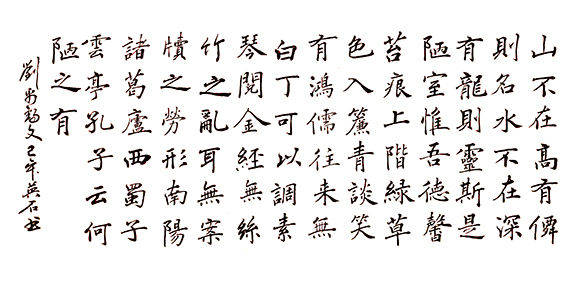 山不在高有僊
則名水不在深
有龍則靈斯是
陋室惟吾德馨
苔痕上階緑草
色入簾青談笑
有鴻儒往来無
白丁可以調素
琴閱金經無絲
竹之亂耳無案
牘之勞形南陽
諸葛廬西蜀子
雲亭孔子云何
陋之有
劉禹錫文 英石书